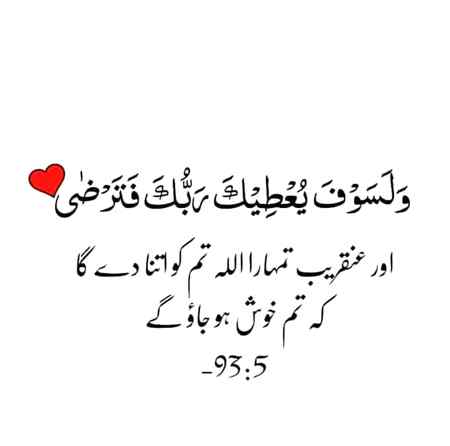 وَلَسَوْفَ يُعْطِيْكَ رَبُّكَ فَتَرْضٰى
اور عنقریب تمہارا اللہ تم کو اتنا دے گا
کہ تم خوش ہو جاؤ گے
-93:5